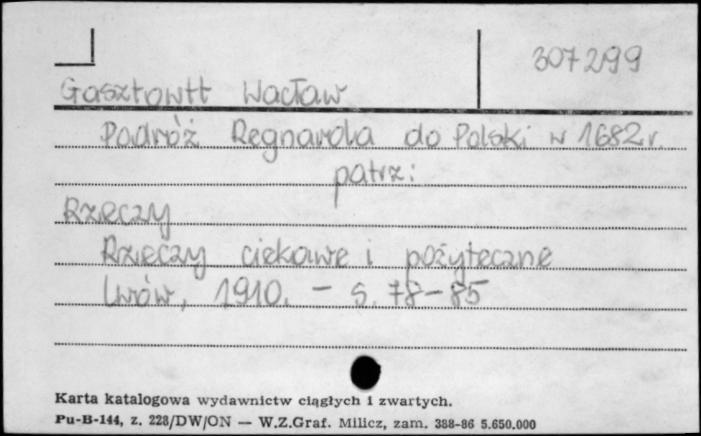 307299
Gasztowtt Wacław
Podróż Regnarda do Polski w 1682 r.
patrz:
Rzeczy
Rzeczy ciekawe i pożyteczne
Lwów, 1910. - s. 78-85
Karta katalogowa wydawnictw ciągłych i zwartych.
Pu-B-144, z. 228/DW/ON — W.Z.Graf. Milicz, zam. 388-86 5.650.000